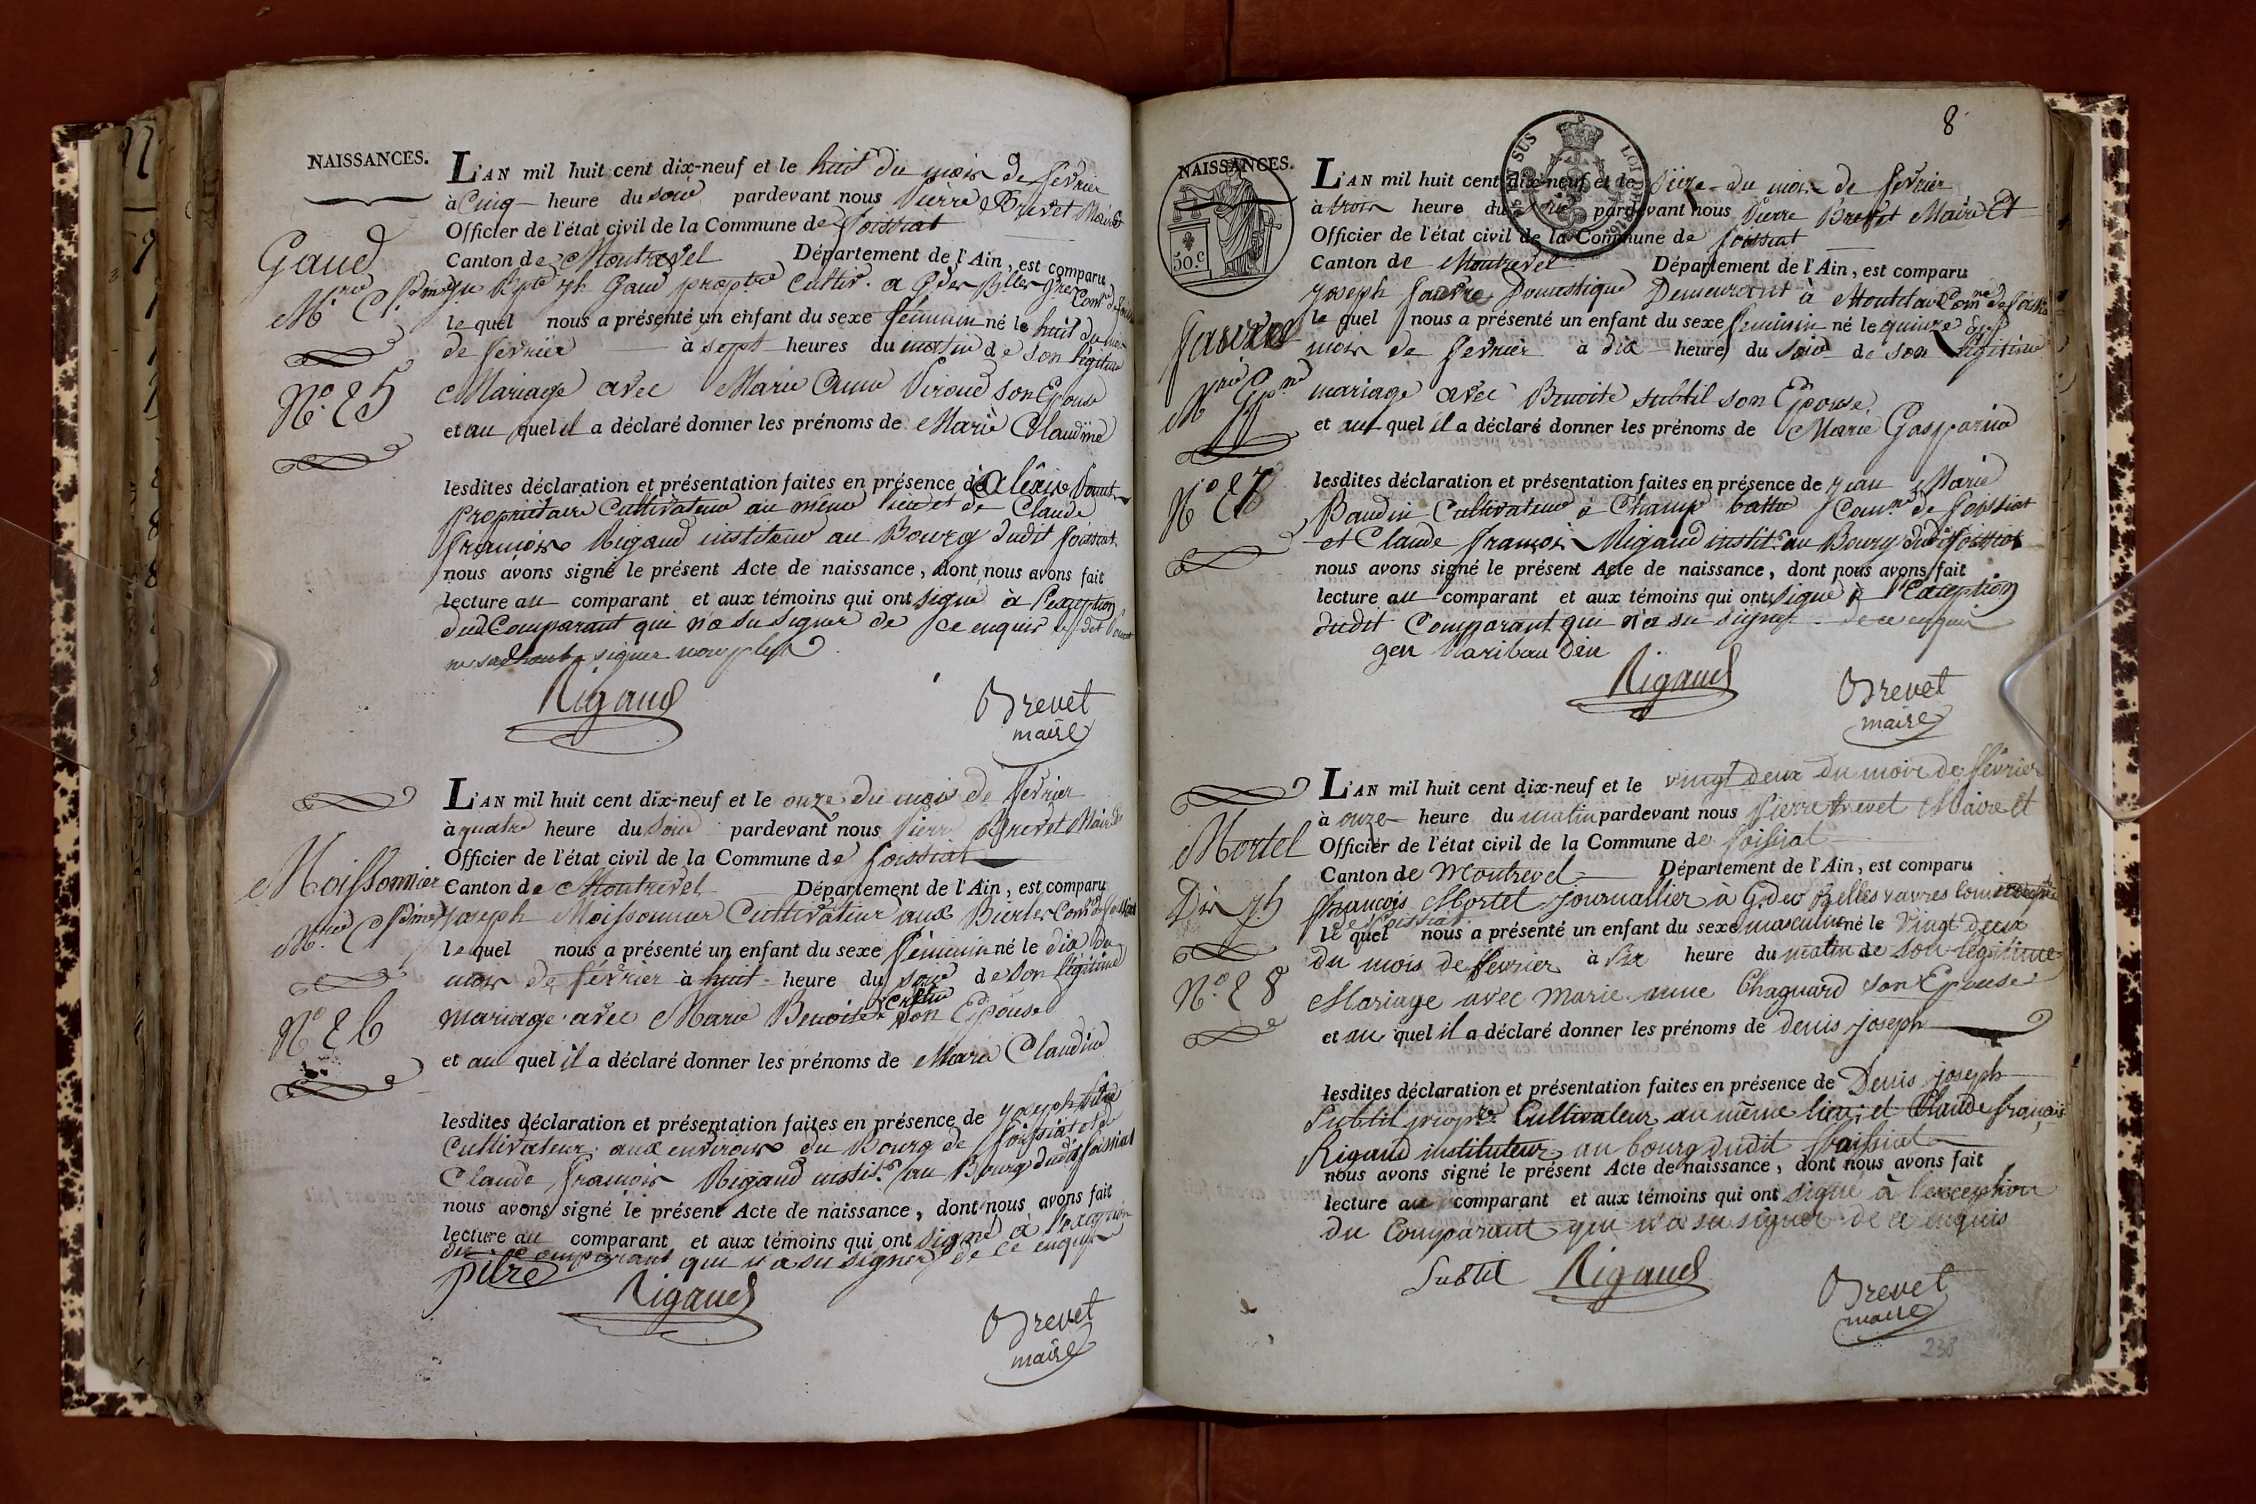 NAISSANCES.
L'AN mil huit cent dix-neuf et le huit du mois de fevrier
à Cinq heure du soir pardevant nous Pierre Brevet Maire et
Officier de l'état civil de la Commune de foissiat
Canton de Montrevel Département de l'Ain, est comparu
Gaud
Gaud propre cultiv. a
le quel nous a présenté un enfant du sexe féminin né le huit du mois
de fevrier à sept heures du matin de son légitime
Mariage avec Marie Anne Viroud son Epouse
N.º 25
et au quel il a déclaré donner les prénoms de Marie Claudine
lesdites déclaration et présentation faites en présence de
Proprietaire Cultivateur au même lieu et de Claude
françois Rigaud instituteur au Bourg dudit foissiat
nous avons signé le présent Acte de naissance, dont nous avons fait
lecture au comparant et aux témoins qui ont signé à l'exception
dud Comparant qui n'a su signer de ce enquis
signer non plus
Rigaud
Brevet
maire
L'AN mil huit cent dix-neuf et le onze du mois de fevrier
à quatre heure du soir pardevant nous Pierre Brevet Maire
Officier de l'état civil de la Commune de foissiat
Moissonnier
Canton de Montrevel Département de l'Ain, est comparu
Joseph Moissonnier Cultivateur aux
le quel nous a présenté un enfant du sexe féminin né le dix du
mois de fevrier à huit heure du soir de son légitime
mariage avec Marie Benoite son Epouse
N.º 26
et au quel il a déclaré donner les prénoms de Marie Claudine
lesdites déclaration et présentation faites en présence de joseph
Cultivateur aux environs du Bourg de foissiat et de
Claude françois Rigaud instit.r au Bourg dudit foissiat
nous avons signé le présent Acte de naissance, dont nous avons fait
lecture au comparant et aux témoins qui ont signé à l'exception
du comparant qui n'a su signer de ce enquis
pitre
Rigaud
Brevet
maire
8
NAISSANCES.
50.c
L'AN mil huit cent dix-neuf et le du mois de fevrier
à trois heure du soir pardevant nous Pierre Brevet Maire Et
Officier de l'état civil de la Commune de foissiat
Canton de Montrevel Département de l'Ain, est comparu
joseph Domestique Demeurant à
le quel nous a présenté un enfant du sexe feminin né le quinze du
mois de fevrier à dix heure du soir de son légitime
mariage avec Benoite subtil son Epouse
et au quel il a déclaré donner les prénoms de Marie Gasparine
N.º 27
lesdites déclaration et présentation faites en présence de jean Marie
Baudin Cultivateur à Champ battu Comn.e de foissiat
et Claude françois Rigaud instit.r au Bourg dudit foissiat
nous avons signé le présent Acte de naissance, dont nous avons fait
lecture au comparant et aux témoins qui ont signé à l'Exception
dudit Comparant qui n'a su signer de ce enquis
Rigaud
Brevet
maire
L'AN mil huit cent dix-neuf et le vingt deux du mois de février
à onze heure du matin pardevant nous Pierre brevet Maire et
Mortel
Officier de l'état civil de la Commune de foissiat
Canton de Montrevel Département de l'Ain, est comparu
françois Mortel journallier à
de foissiat
le quel nous a présenté un enfant du sexe masculin né le vingt deux
du mois de fevrier à six heure du matin de son légitime
N.º 28
Mariage avec marie anne Chagnard son Epouse
et au quel il a déclaré donner les prénoms de denis joseph
lesdites déclaration et présentation faites en présence de Denis joseph
Subtil prop.re Cultivateur au même lieu, et Claude françois
Rigaud instituteur au bourg dudit foissiat
nous avons signé le présent Acte de naissance, dont nous avons fait
lecture au comparant et aux témoins qui ont signé à l'exception
du Comparant qui n'a su signer de ce enquis
Subtil
Rigaud
Brevet
maire
238